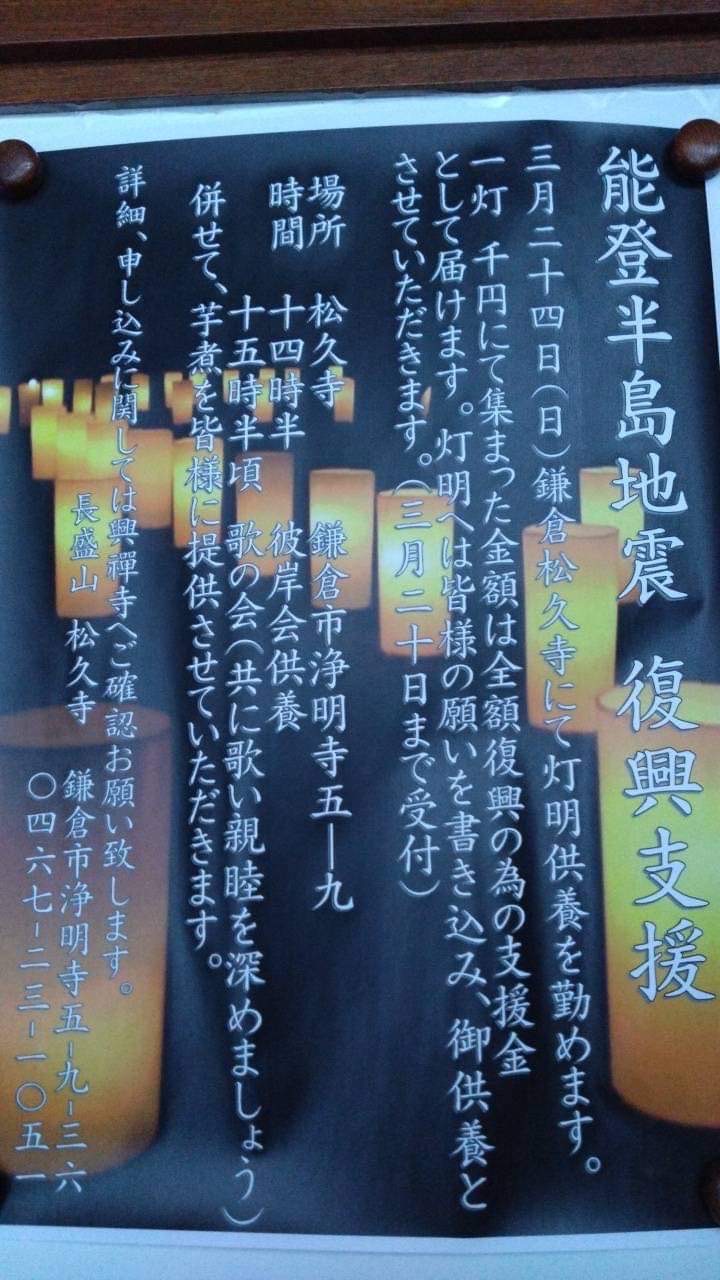 能登半島地震　復興支援
三月二十四日(日)鎌倉松久寺にて灯明供養を勤めます。
一灯　千円にて集まった金額は全額復興の為の支援金
として届けます。灯明へは皆様の願いを書き込み、御供養と
させていただきます。(三月二十日まで受付)
場所　松久寺　鎌倉市浄明寺五―九
時間　十四時半　彼岸会供養
十五時半頃　歌の会(共に歌い親睦を深めましょう)
併せて、芋煮を皆様に提供させていただきます。
詳細、申し込みに関しては興禅寺へご確認お願い致します。
長盛山　松久寺　鎌倉市浄明寺五-九-三六
〇四六七-二三-一〇五一